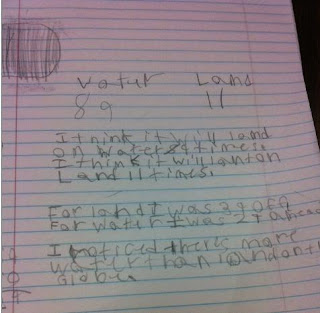 watur Land
89 11
I think it will land
on water 89 times.
I think it will lanton
Land 11 times.
For land I was 29 off
For water I was 29 ahead
I noticed theres more
water than land on the
Globe.
9